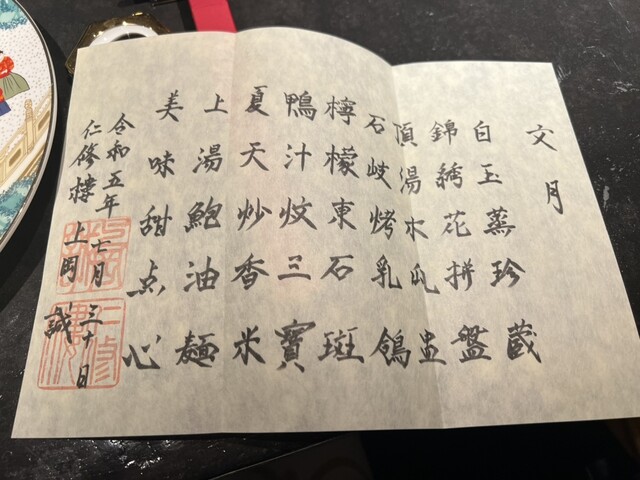 文月
白玉蒸珍蔵
錦綉花拼盤
頂湯水瓜盅
石岐烤乳鴿
檸檬東石斑
鴨汁炆三寶
夏天炒香米
上湯鮑油麺
美味甜点心
令和五年七月三十日
仁修樓 上岡 誠